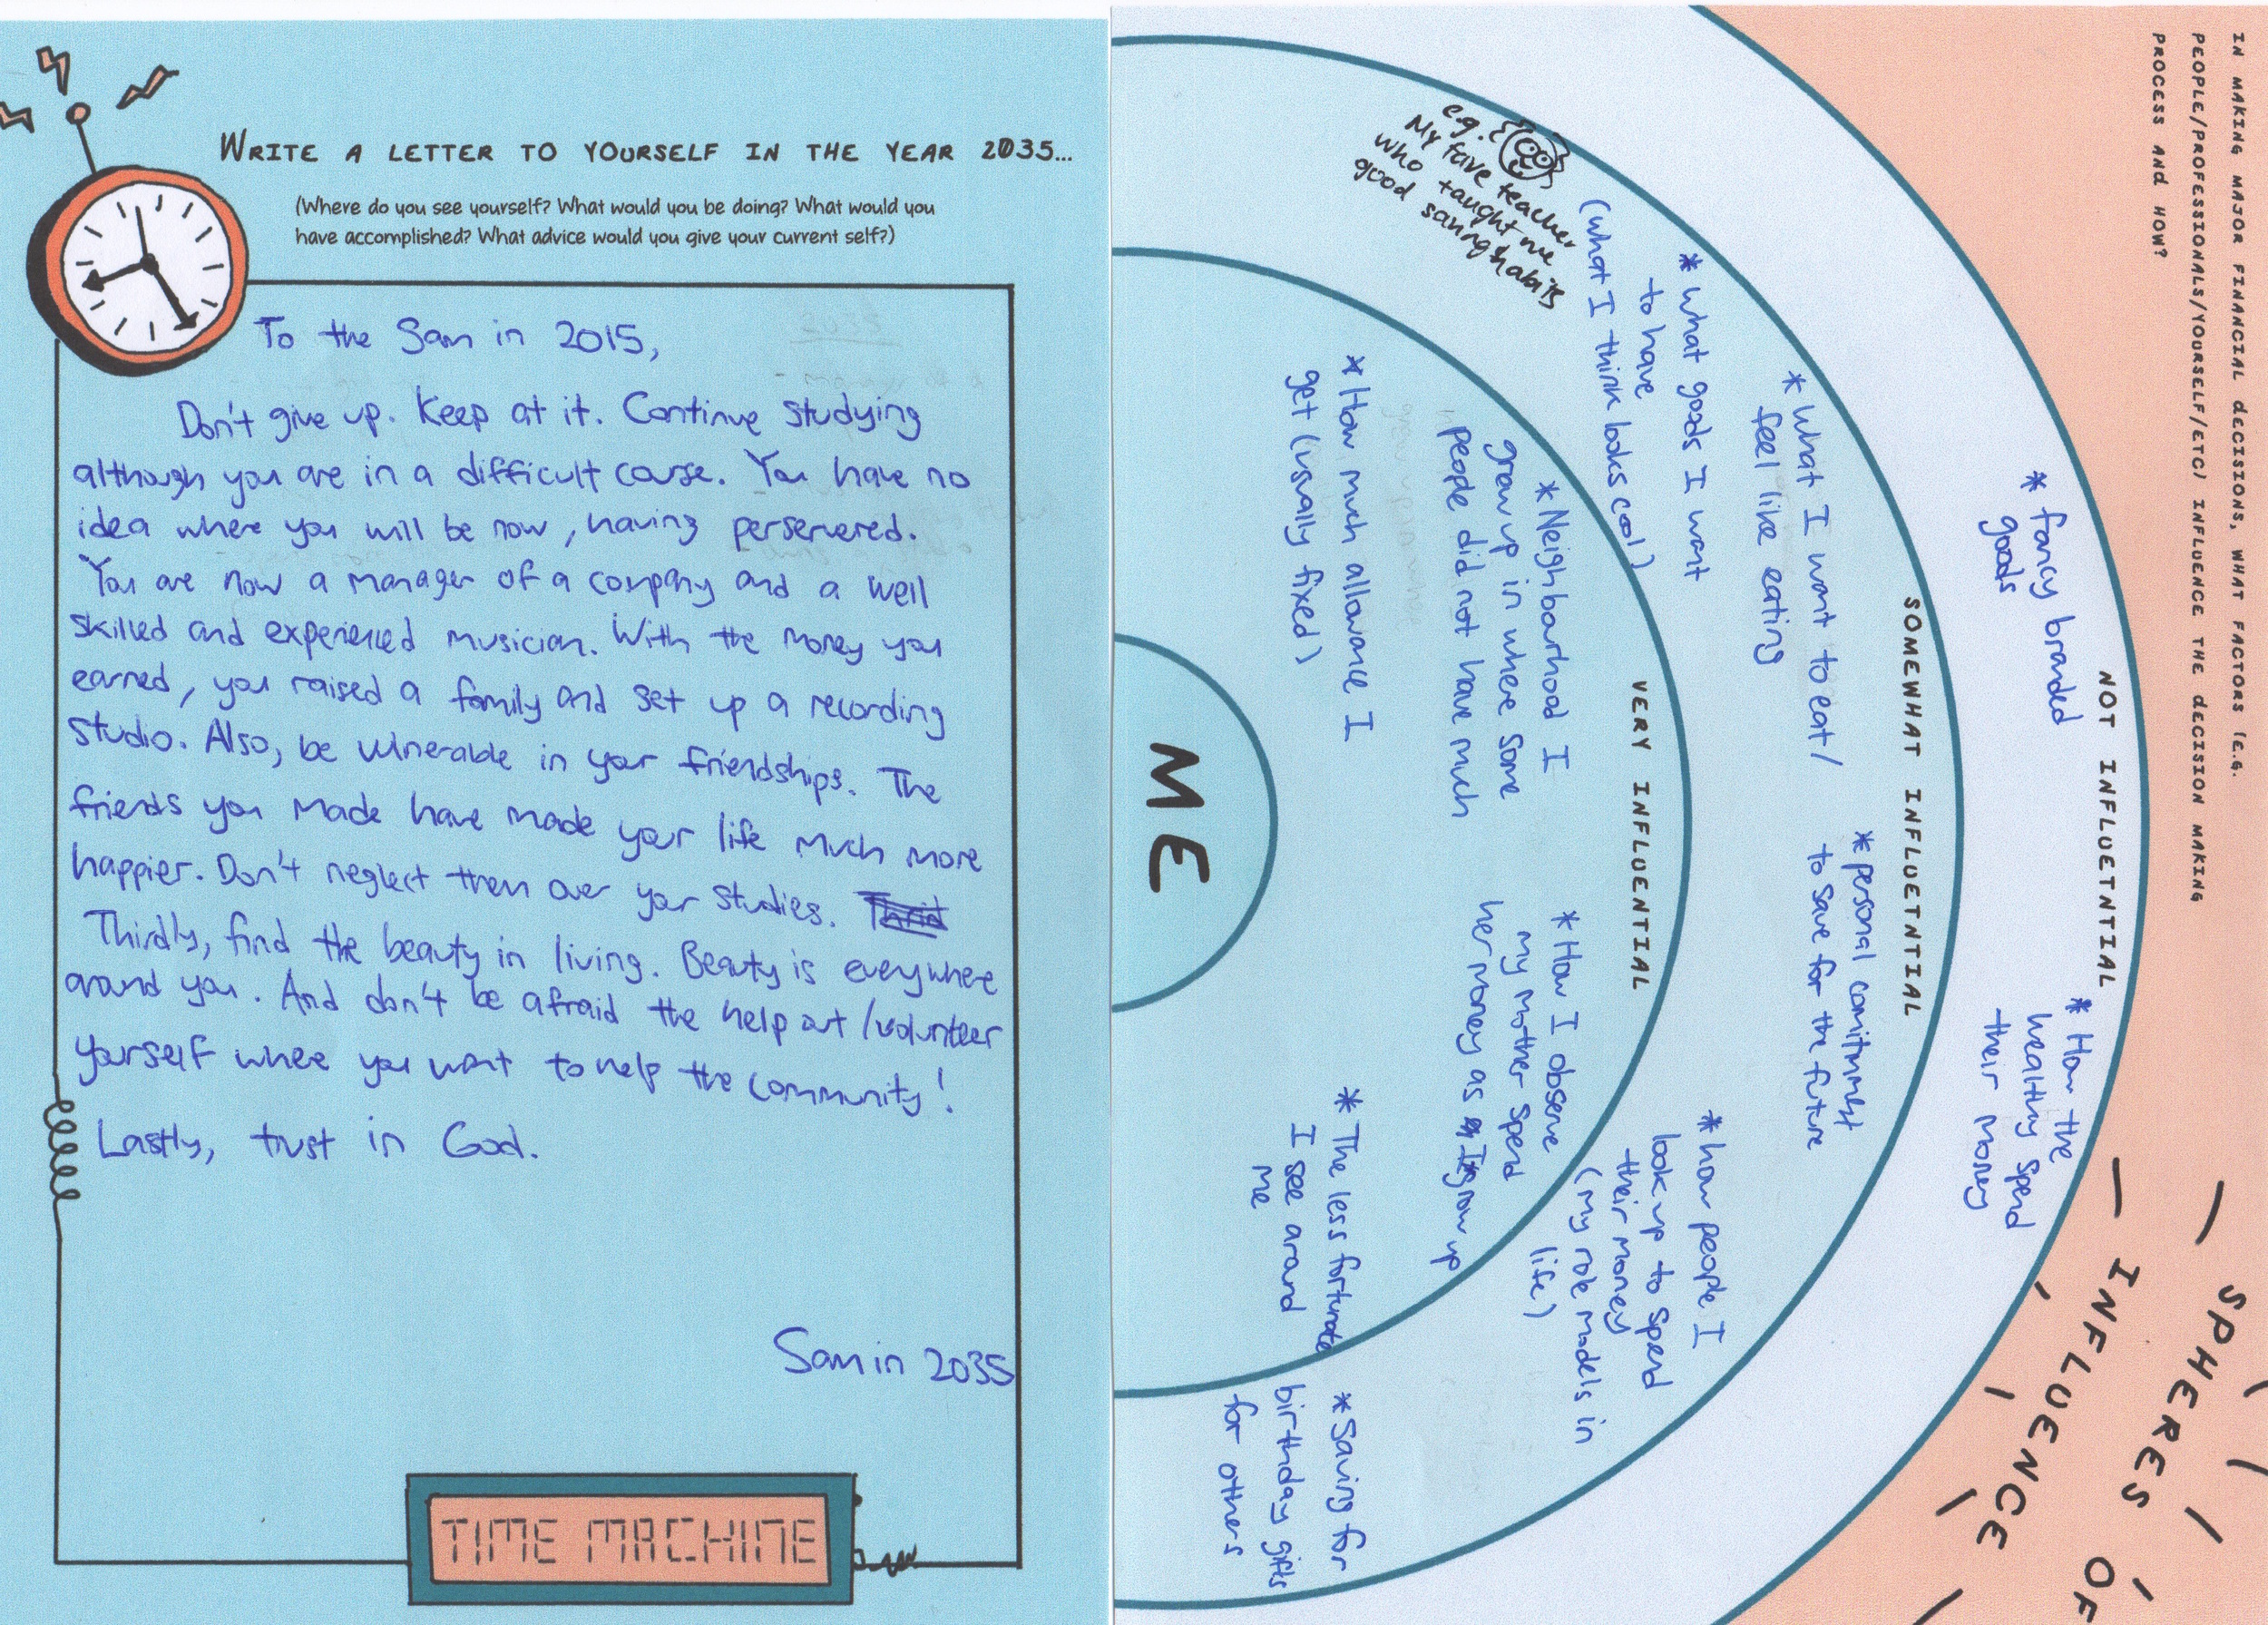 WRITE A LETTER TO YOURSELF IN THE YEAR 2035...
(Where do you see yourself? What would you be doing? What would you
have accomplished? What advice would you give your current self?)
To the Sam in 2015,
Don't give up. Keep at it. Continue studying
although you are in a difficult course. You have no
idea where you will be now, having perservered.
You are now a manager of a company and a well
skilled and experienced musician. With the money you
earned, you raised a family and set up a recording
studio. Also, be vulnerable in your friendships. The
friends you made have made your life much more
happier. Don't neglect them over your studies.
Thirdly, find the beauty in living. Beauty is everywhere
around you. And don't be afraid the help out/volunteer
yourself where you want to help the community!
Lastly, trust in God.
Sam in 2035
TIME MACHINE
IN MAKING MAJOR FINANCIAL DECISIONS, WHAT FACTORS (E.G.
PEOPLE/PROFESSIONALS/YOURSELF/ETC) INFLUENCE THE DECISION MAKING
PROCESS AND HOW?
SPHERES OF
INFLUENCE
NOT INFLUETNTIAL
* fancy branded
goods
* How the
wealthy spend
their money
SOMEWHAT INFLUETNTIAL
* What I want to eat/
feel like eating
* personal comitment
to save for the future
* what goods I want
to have
(what I think looks cool)
* how people I
look up to spend
their money
(my role models in
life)
e.g.
My fave teacher
who taught me
good saving habits
* Saving for
birthday gifts
for others
VERY INFLUENTIAL
* Neighbourhood I
grow up in where some
people did not have much
* How I observe
my mother spend
her money as I grow up
* How much allowance I
get (usually fixed)
* The less fortunate
I see around
me
ME